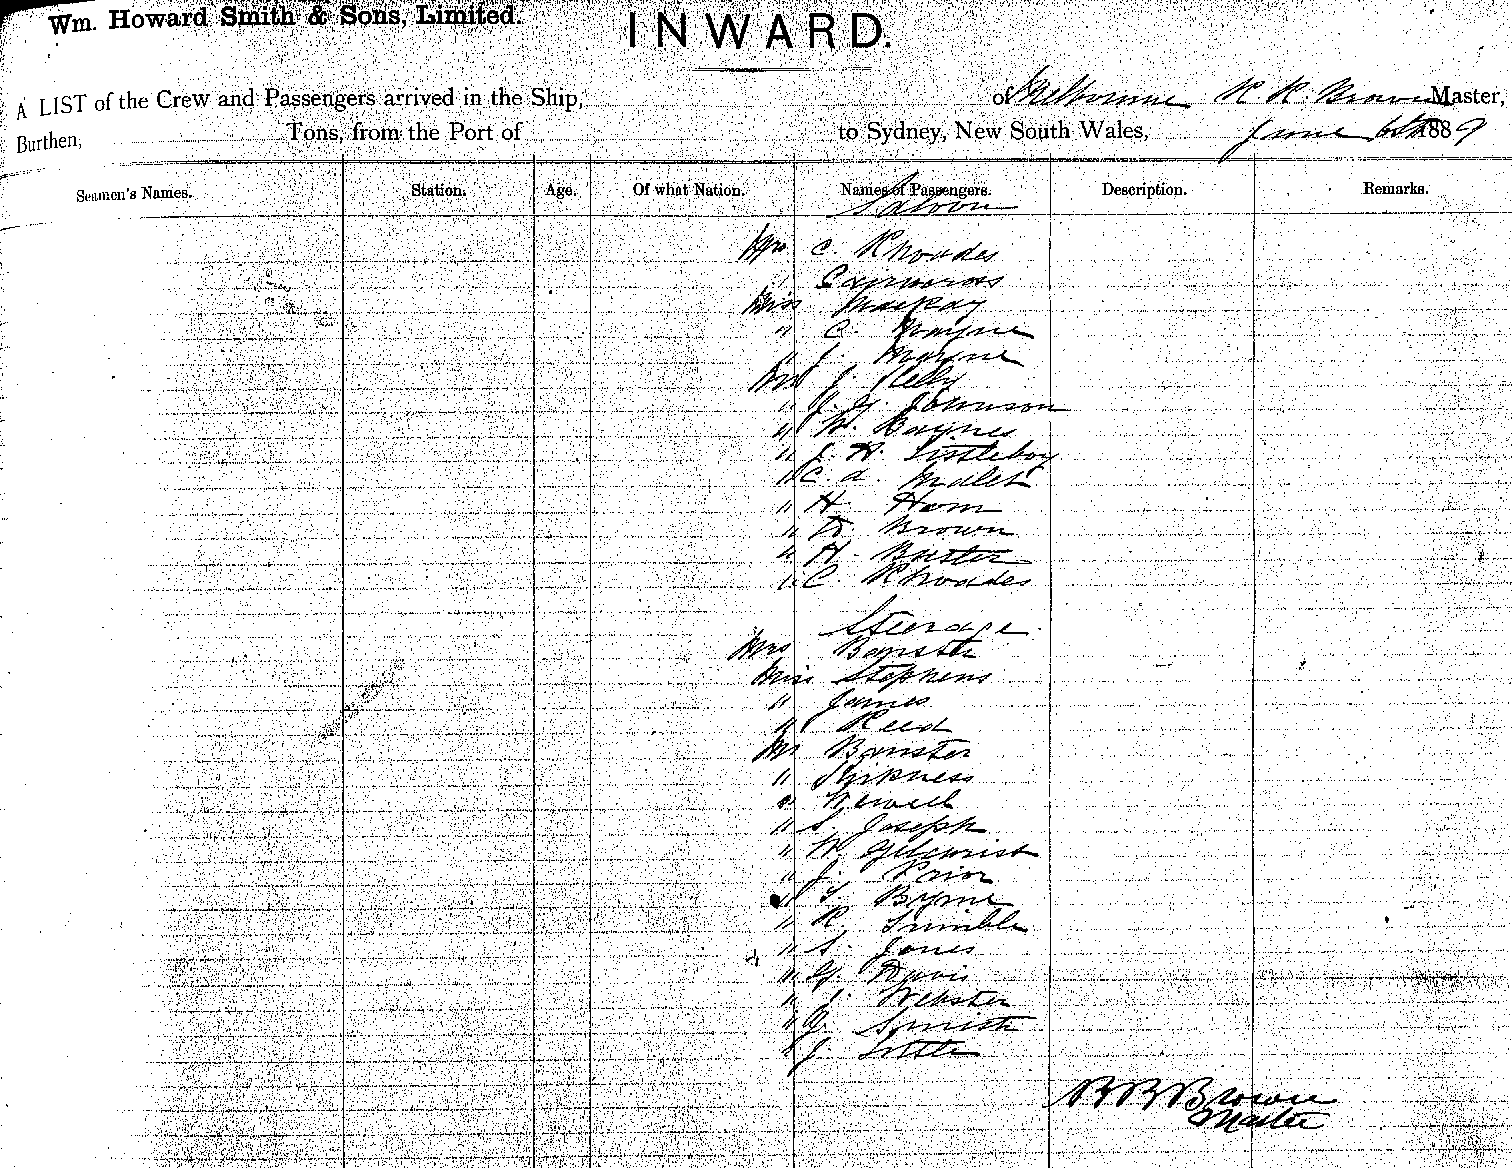 Wm. Howard Smith & Sons, Limited.
INWARD.
A LIST of the Crew and Passengers arrived in the Ship, of Melbourne Brown Master,
Burthen, Tons, from the Port of to Sydney, New South Wales, June 6th 1889
Seamen's Names. Station. Age. Of what Nation. Names of Passengers. Description. Remarks.
Saloon
Mrs C. Rhoades
Miss MacKay
" C. Mayne
" J. Mayne
J. Kelly
" Johnson
" W. Baynes
" J. H. Littleboy
" C. A. Malet
" H.
" Brown
" H.
" C Rhoades
Steerage
Mrs Banister
Miss Stephens
" James
" Reed
Mr Banister
" Harkness
"
" S. Joseph
" W. Gilchrist
" J. Prior
" T. Byrne
" R. Trimble
" S. Jones
" G. Davis
" J. Webster
" Smith
" J. Little
Brown
Master